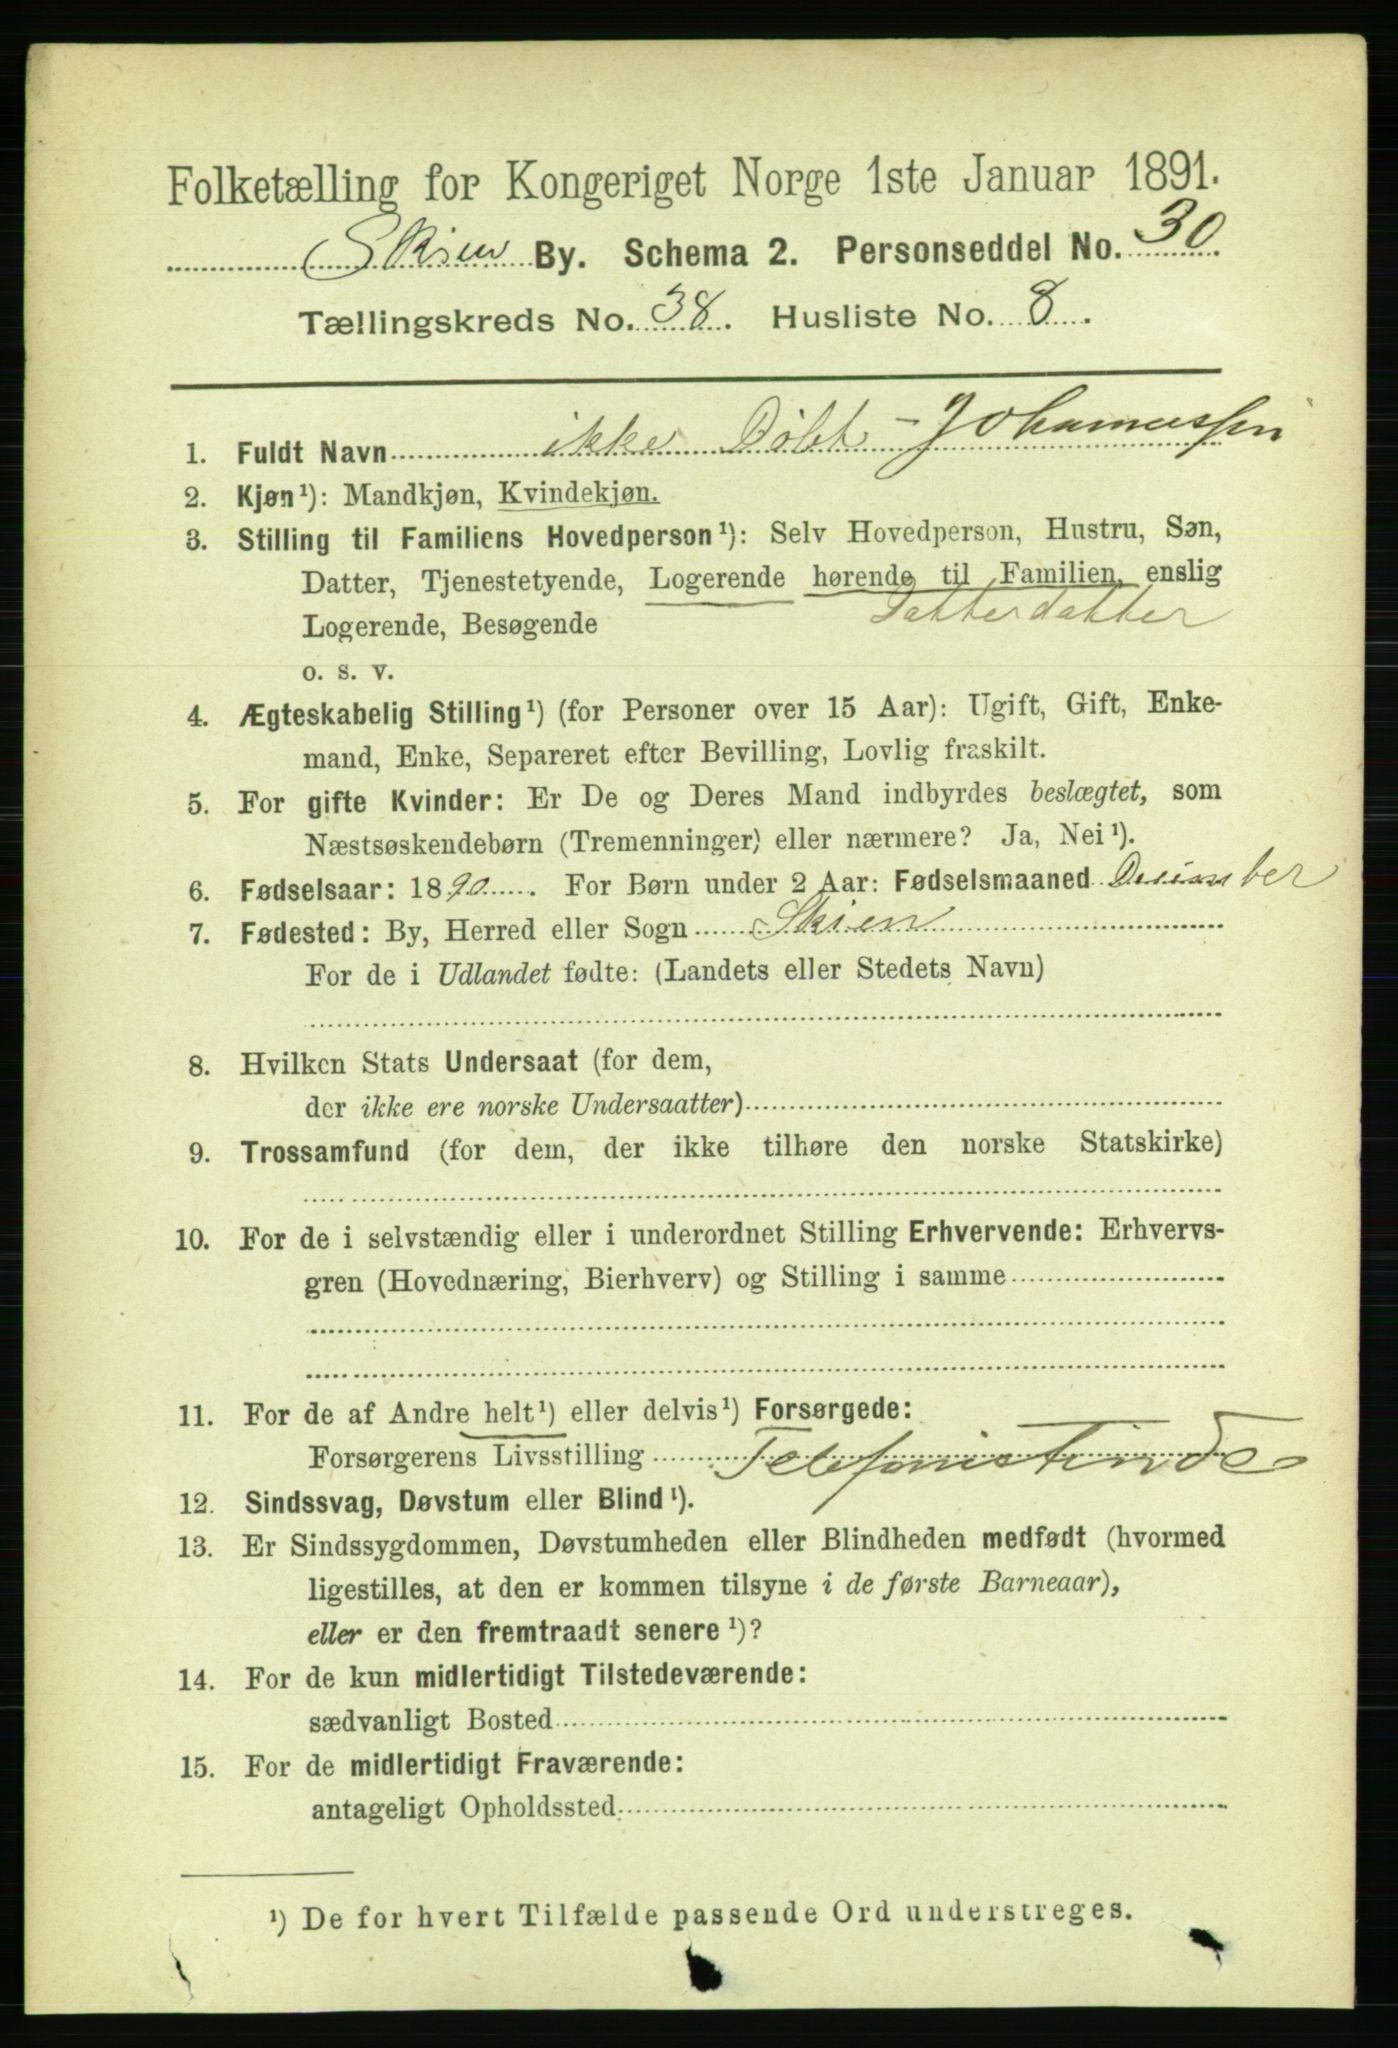 Folketælling for Kongeriget Norge 1ste Januar 1891.
Skien By. Schema 2. Personseddel No. 30
Tællingskreds No. 38. Husliste No. 8.
1. Fuldt Navn ikke Døbt - Johannessen
2. Kjøn¹): Mandkjøn, Kvindekjøn.
3. Stilling til Familiens Hovedperson¹): Selv Hovedperson, Hustru, Søn,
Datter, Tjenestetyende, Logerende hørende til Familien, enslig
Logerende, Besøgende Datterdatter
o. s. v.
4. Ægteskabelig Stilling¹) (for Personer over 15 Aar): Ugift, Gift, Enke-
mand, Enke, Separeret efter Bevilling, Lovlig fraskilt.
5. For gifte Kvinder: Er De og Deres Mand indbyrdes beslægtet, som
Næstsøskendebørn (Tremenninger) eller nærmere? Ja, Nei¹).
6. Fødselsaar: 1890. For Børn under 2 Aar: Fødselsmaaned December
7. Fødested: By, Herred eller Sogn Skien
For de i Udlandet fødte: (Landets eller Stedets Navn)
8. Hvilken Stats Undersaat (for dem,
der ikke ere norske Undersaatter)
9. Trossamfund (for dem, der ikke tilhøre den norske Statskirke)
10. For de i selvstændig eller i underordnet Stilling Erhvervende: Erhvervs-
gren (Hovednæring, Bierhverv) og Stilling i samme
11. For de af Andre helt¹) eller delvis¹) Forsørgede:
Forsørgerens Livsstilling Telefonistinde
12. Sindssvag, Døvstum eller Blind¹).
13. Er Sindssygdommen, Døvstumheden eller Blindheden medfødt (hvormed
ligestilles, at den er kommen tilsyne i de første Barneaar),
eller er den fremtraadt senere¹)?
14. For de kun midlertidigt Tilstedeværende:
sædvanligt Bosted
15. For de midlertidigt Fraværende:
antageligt Opholdssted
¹) De for hvert Tilfælde passende Ord understreges.